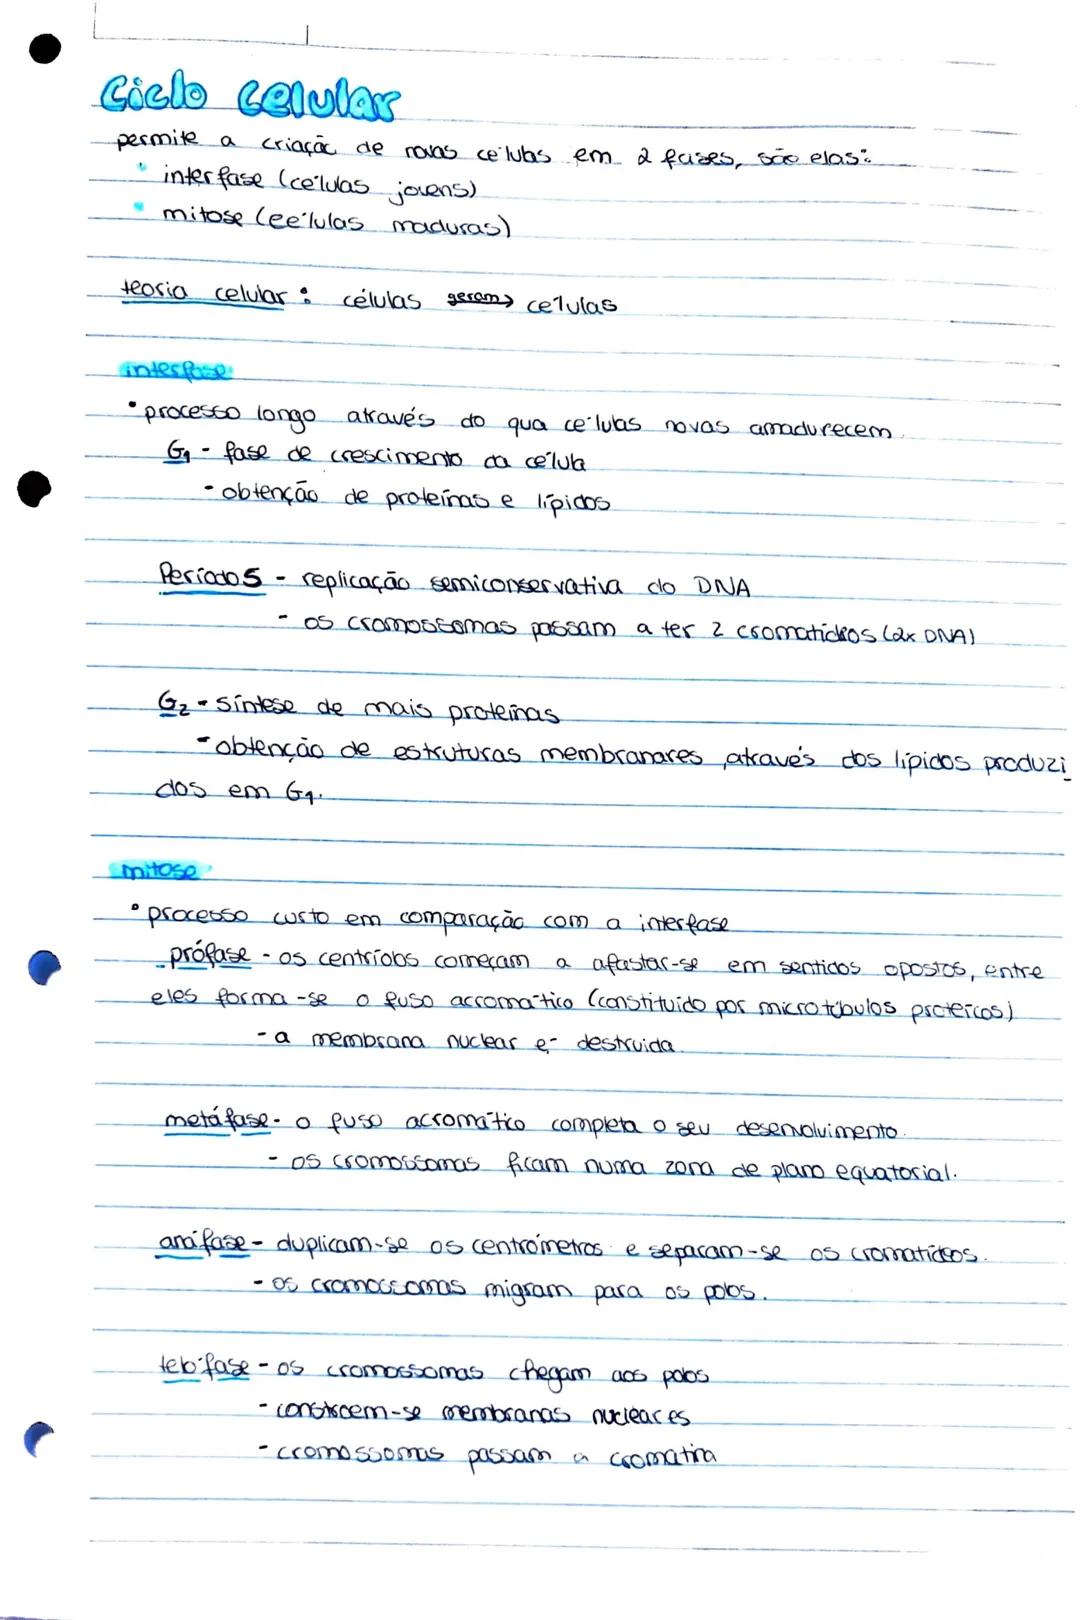 Ciclo celular
permite a criação de novas células em 2 fases, são elas:
• interfase (células jovens)
• mitose (células maduras)
teoria celular: células geram→ células
interfase
• processo longo através do qua células novas amadurecem.
G1 - fase de crescimento da célula
- obtenção de proteínas e lípidos
Período S - replicação semiconservativa do DNA
- os cromossomas passam a ter 2 cromatídios (2x DNA)
G2 - síntese de mais proteínas
- obtenção de estruturas membranares, através dos lípidos produzi
dos em G1.
mitose
• processo curto em comparação com a interfase
prófase - os centríolos começam a afastar-se em sentidos opostos, entre
eles forma-se o fuso acromático (constituído por microtúbulos proteicos)
- a membrana nuclear é destruída.
metáfase - o fuso acromático completa o seu desenvolvimento.
- os cromossomas ficam numa zona de plano equatorial.
anáfase - duplicam-se os centrómetros e separam-se os cromatídeos.
- os cromossomas migram para os polos.
telófase - os cromossomas chegam aos polos
- constroem-se membranas nucleares
- cromossomas passam a cromatina